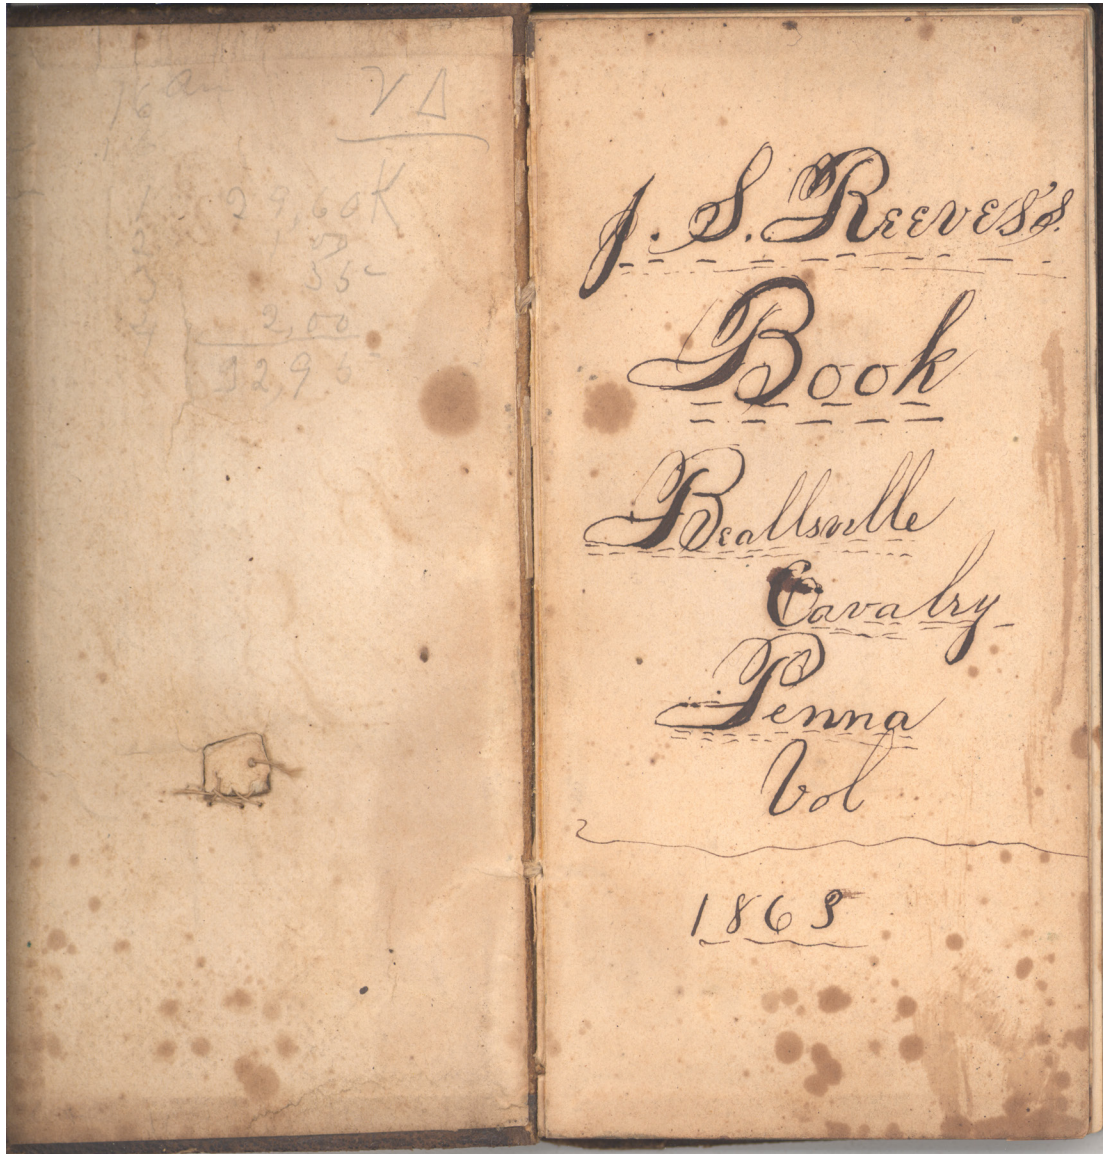 16
V A
K
1 29,60
2 50
3 55
4 2,00
3296
J. S. Reeves's.
Book
Beallsville
Cavalry
Penna
Vol
1863